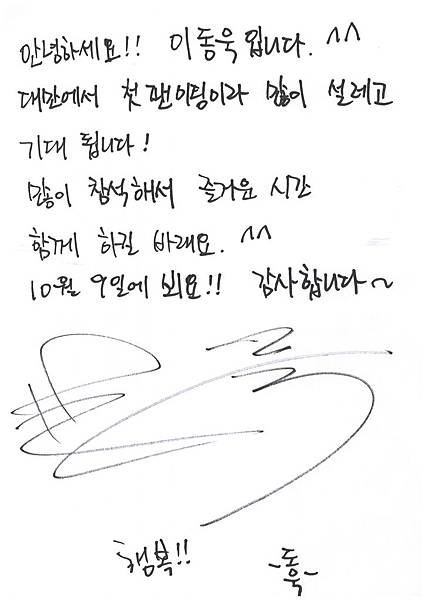 안녕하세요!! 이동욱입니다. ^^
대만에서 첫 팬미팅이라 많이 설레고
기대 됩니다!
많이 참석해서 즐거운 시간
함께 하길 바래요. ^^
10월 9일에 뵈요!! 감사합니다~
행복!!
-동욱-